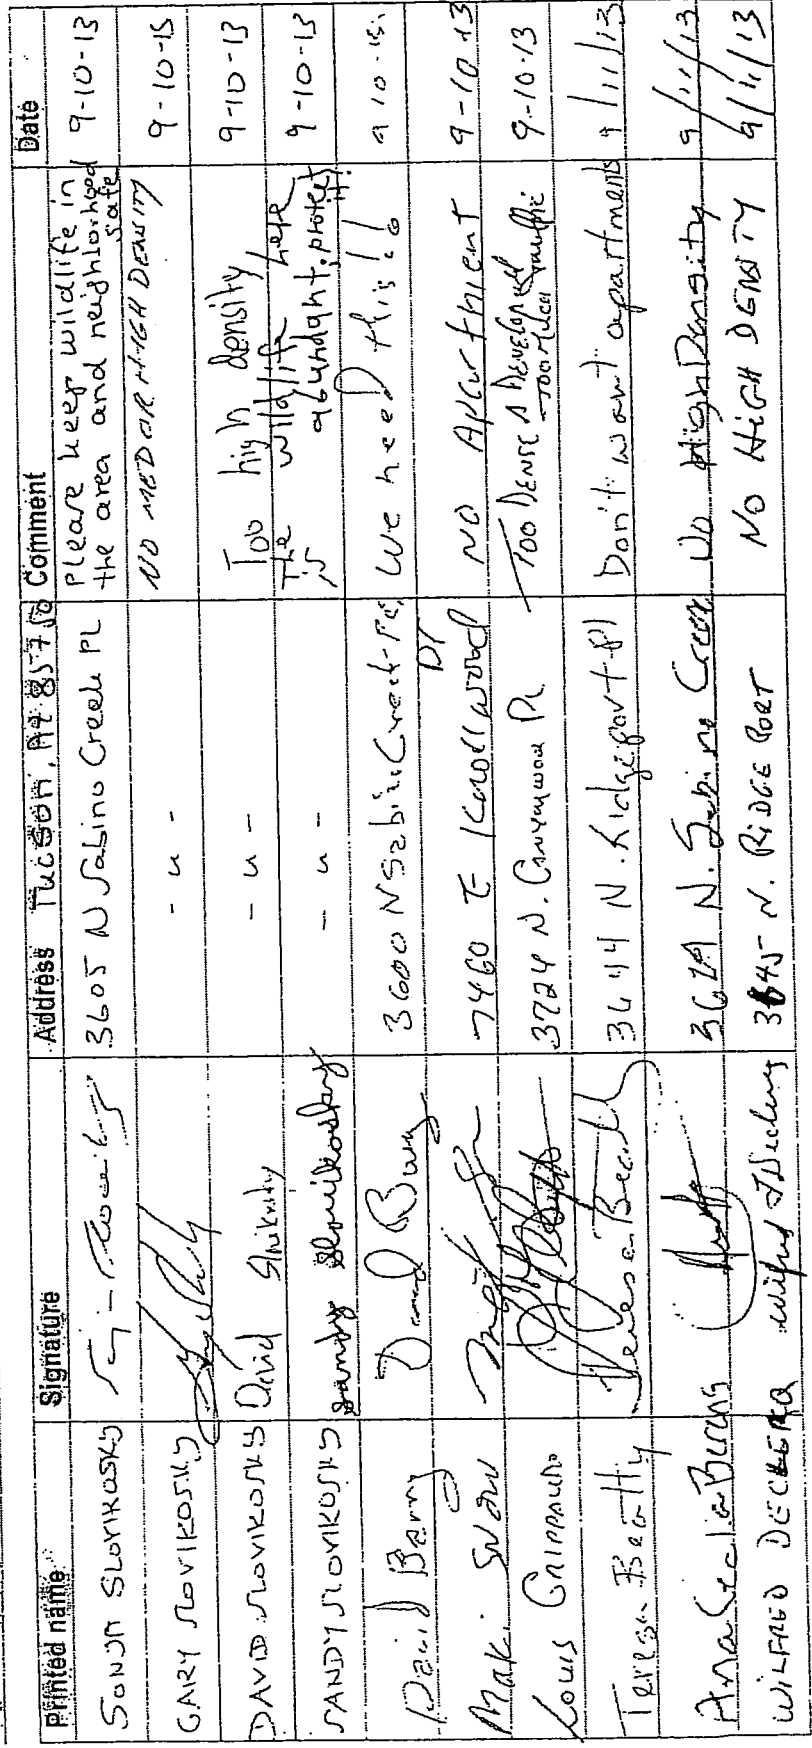 Printed name Signature Address Tucson, AZ 85750 Comment Date
SONJA SLOVIKOSKY 3605 N Sabino Creek PL Please keep wildlife in the area and neighborhood safe 9-10-13
GARY SLOVIKOSKY - " - NO MED OR HIGH DENSITY 9-10-13
DAVID SLOVIKOSKY David Slovikosky - " - Too high density, 9-10-13
SANDY SLOVIKOSKY Sandy Slovikosky - " - The wildlife here is abundant, protect it! 9-10-13
David Barry David Barry 3600 N Sabino Creek Pl We need this!! 9-10-13
Maki 7460 E Knollwood Dr NO Apartment 9-10-13
Louis 3724 N. Canyonwood PL Too DENSE A Development Too Much traffic 9-10-13
Teresa Beatty Teresa Beatty 3644 N. Ridgeport Pl Don't want apartments 9/11/13
Ana Cecilia 3629 N. Sabino Creek No High Density 9/11/13
WILFRED 3645 N. RIDGE PORT NO HIGH DENSITY 9/11/13